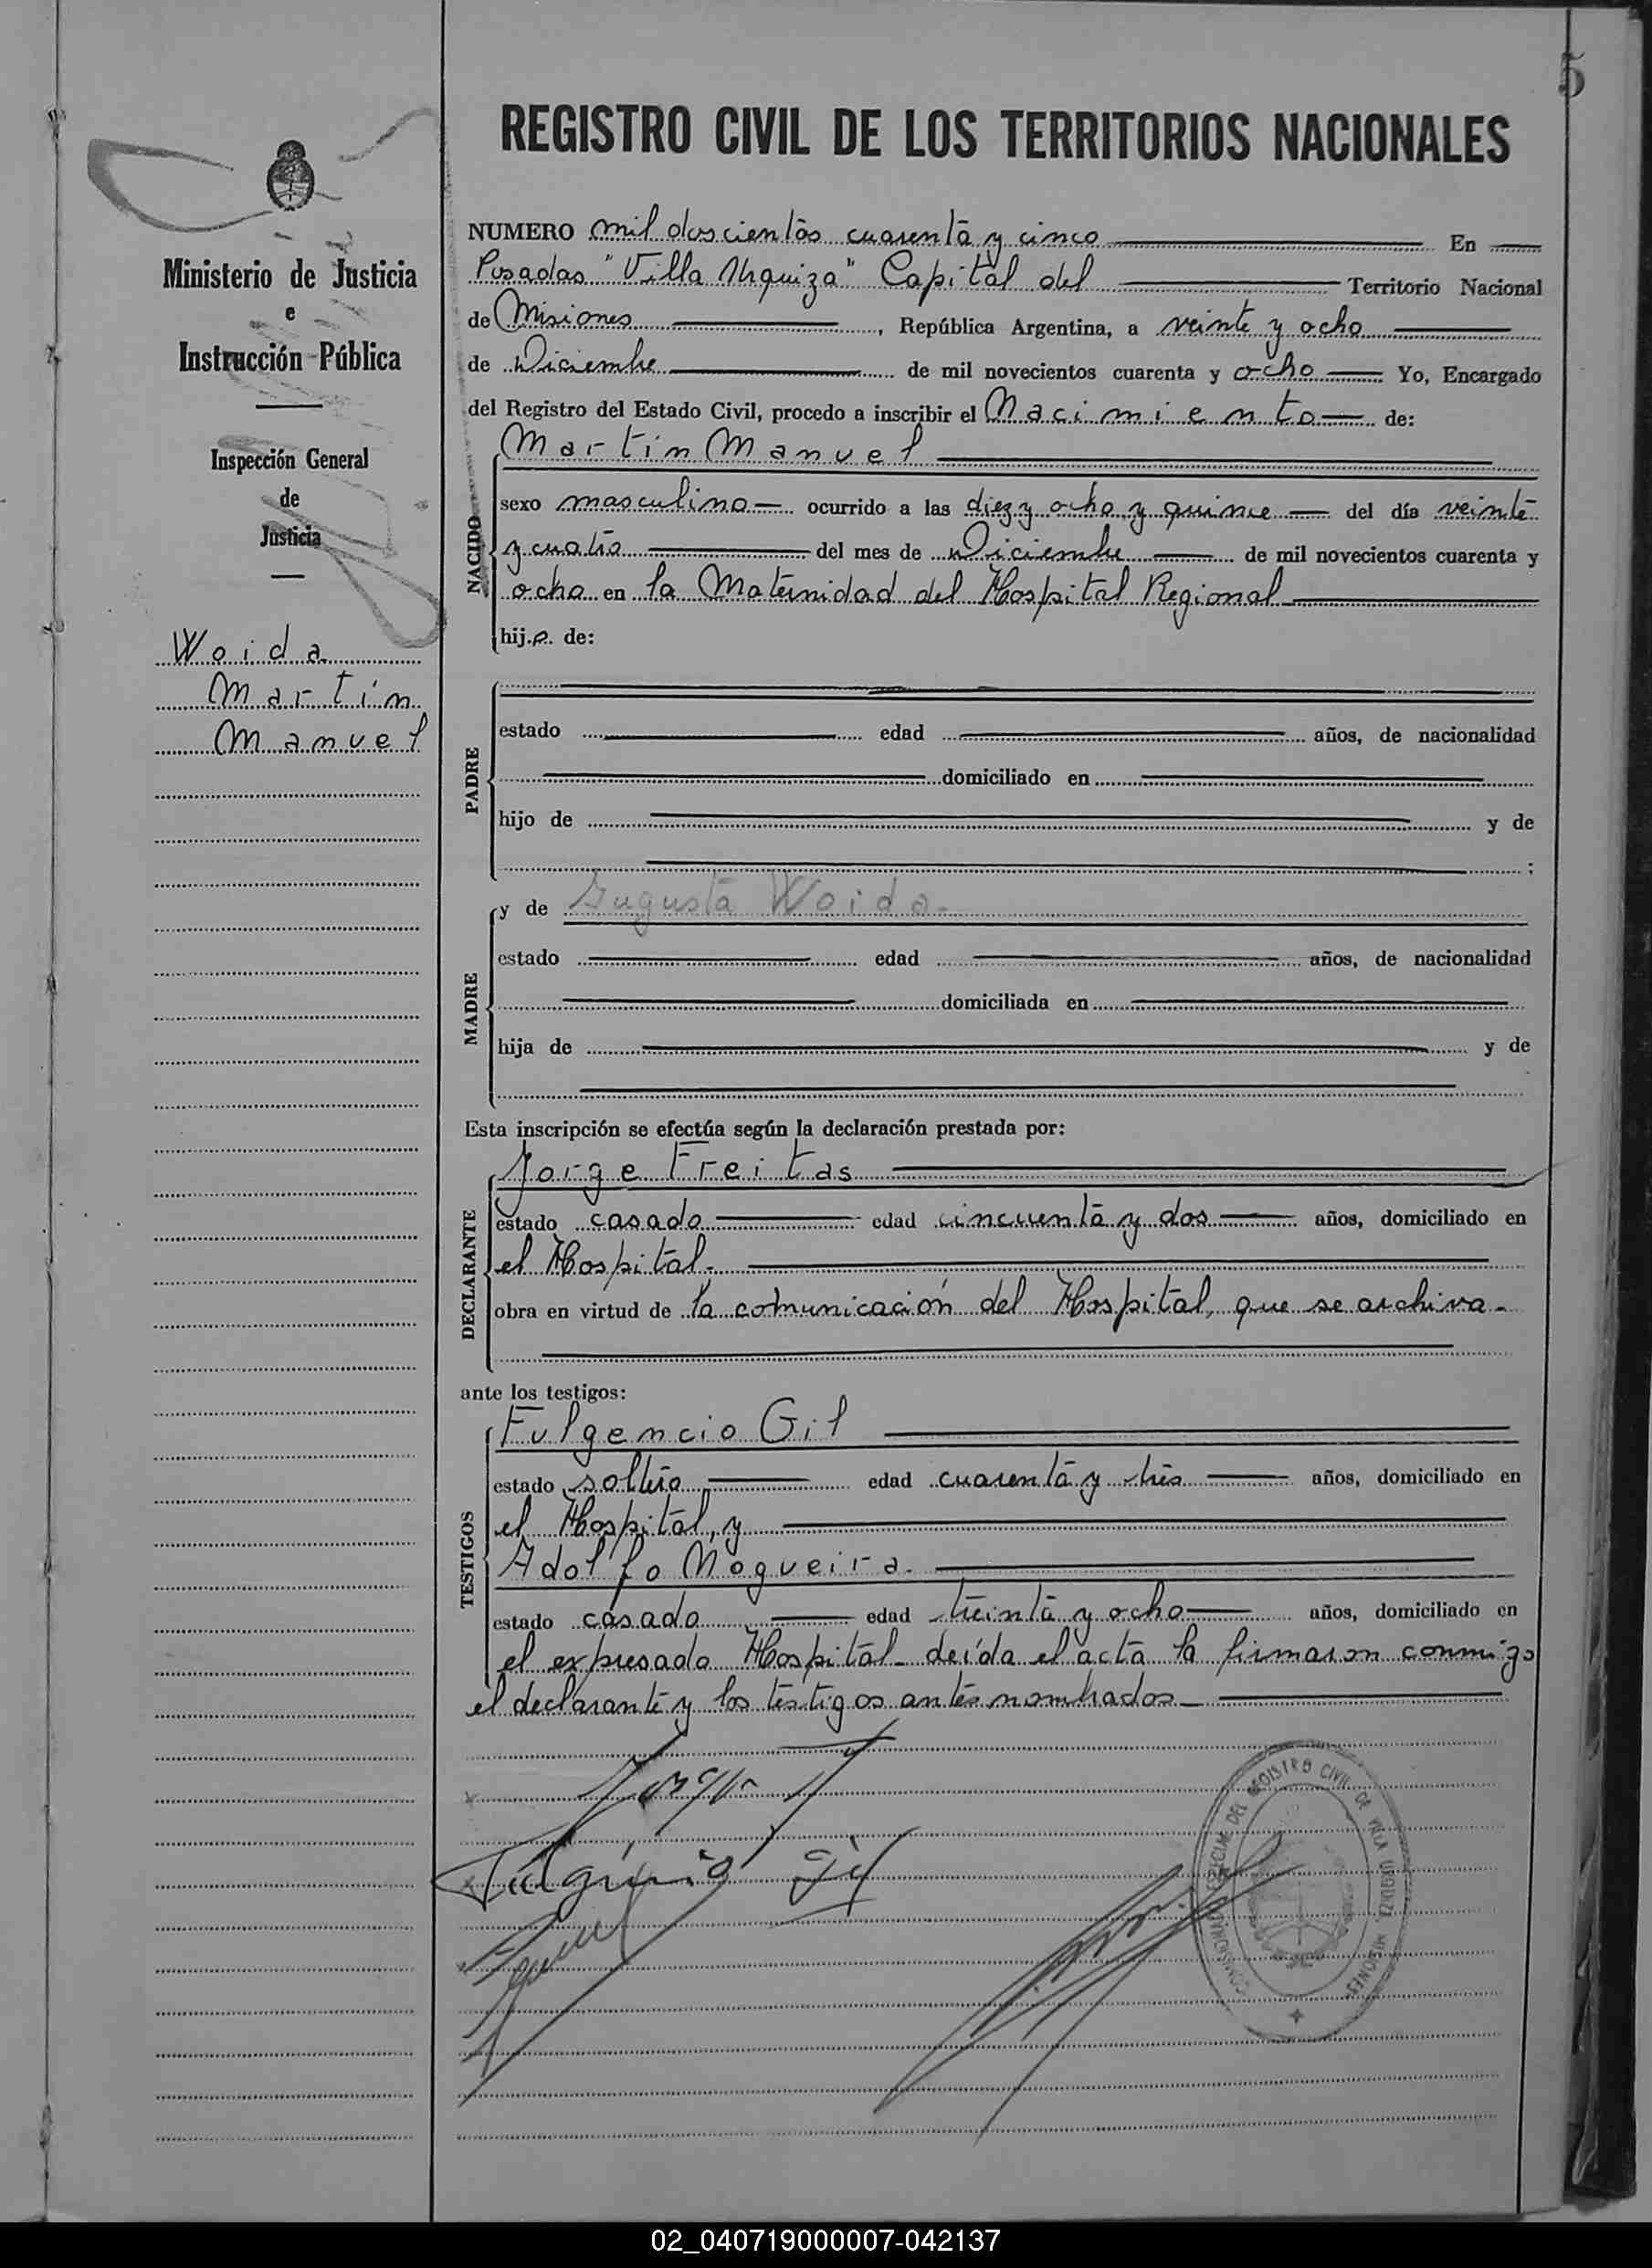 5
REGISTRO CIVIL DE LOS TERRITORIOS NACIONALES
Ministerio de Justicia
e
Instrucción Pública
Inspección General
de
Justicia
Woida
Martín
Manuel
NUMERO mil doscientos cuarenta y cinco En
Posadas "Villa Urquiza" Capital del Territorio Nacional
de Misiones, República Argentina, a veinte y ocho
de Diciembre de mil novecientos cuarenta y ocho Yo, Encargado
del Registro del Estado Civil, procedo a inscribir el Nacimiento de:
NACIDO
Martín Manuel
sexo masculino ocurrido a las diez y ocho y quince del día veinte
y cuatro del mes de Diciembre de mil novecientos cuarenta y
ocho en la Maternidad del Hospital Regional
hijo de:
PADRE
estado edad años, de nacionalidad
domiciliado en
hijo de y de
;
MADRE
y de Augusta Woida.
estado edad años, de nacionalidad
domiciliada en
hija de y de
Esta inscripción se efectúa según la declaración prestada por:
DECLARANTE
Jorge Freitas
estado casado edad cincuenta y dos años, domiciliado en
el Hospital.
obra en virtud de la comunicación del Hospital, que se archiva.
ante los testigos:
TESTIGOS
Fulgencio Gil
estado soltero edad cuarenta y tres años, domiciliado en
el Hospital, y
Adolfo Nogueira.
estado casado edad treinta y ocho años, domiciliado en
el expresado Hospital. Leída el acta la firmaron conmigo
el declarante y los testigos antes nombrados.
REGISTRO CIVIL DE VILLA URQUIZA MISIONES
02_040719000007-042137